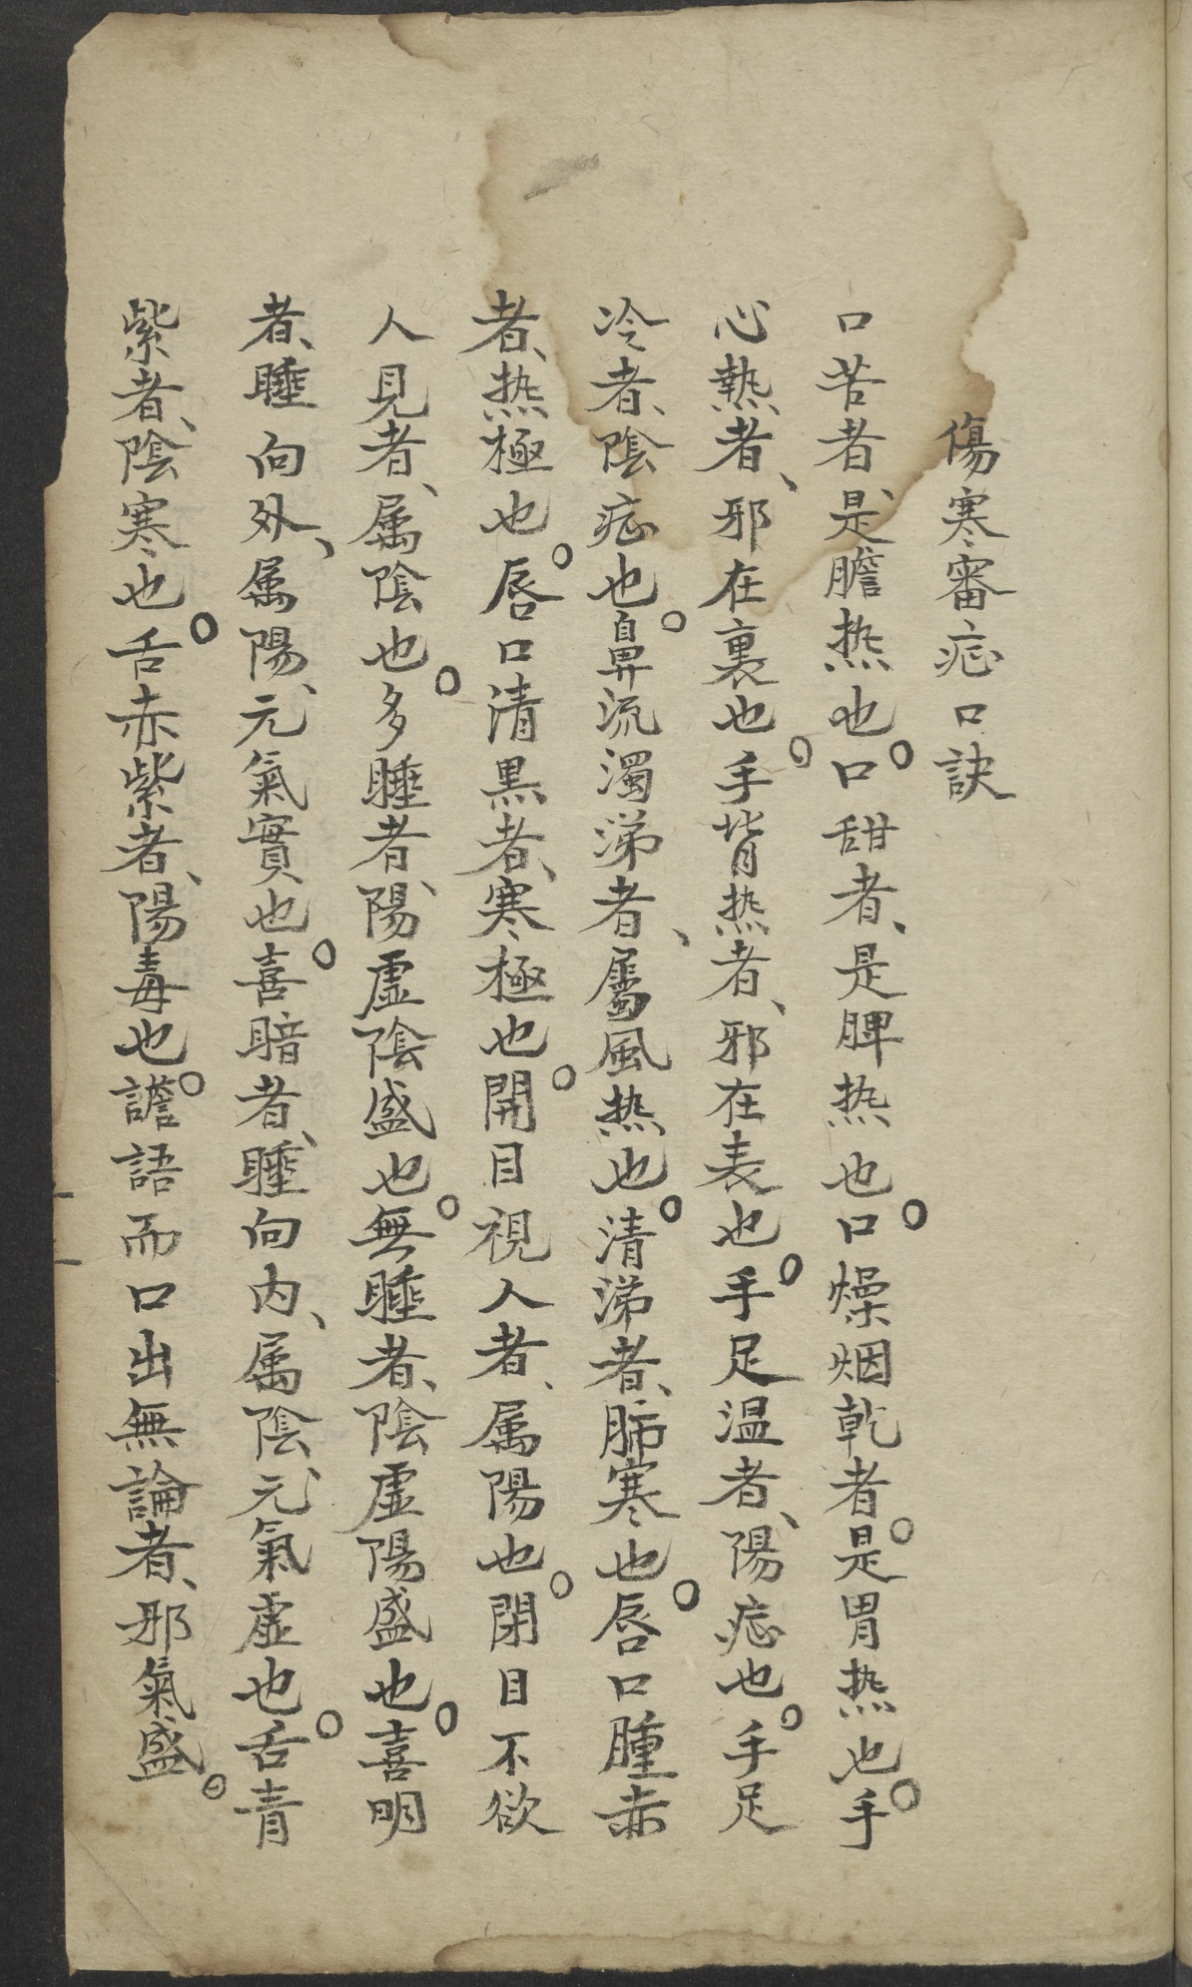 傷寒審症口訣
口苦者、是膽热也。口甜者、是脾热也。口燥烟乾者。是胃热也。手
心熱者、邪在裏也。手背热者、邪在表也。手足温者、陽症也。手足
冷者、陰症也。鼻流濁涕者、屬風热也。清涕者、肺寒也。唇口腫赤
者、热極也。唇口清黑者、寒極也。開目視人者、属陽也。閉目不欲
人見者、属陰也。多睡者、陽虛陰盛也。無睡者、陰虛陽盛也。喜明
者、睡向外、属陽、元氣實也。喜暗者、睡向内、属陰、元氣虛也。舌青
紫者、陰寒也。舌赤紫者、陽毒也。譫語而口出無論者、邪氣盛。